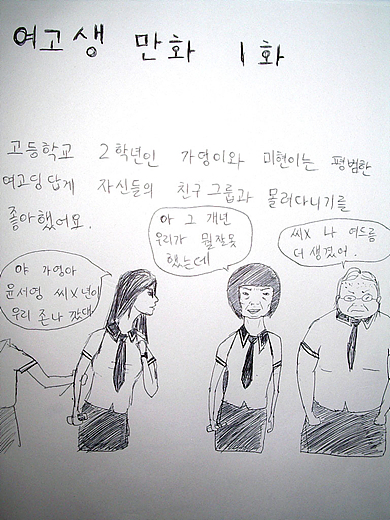 여고생 만화 1화
고등학교 2학년인 가영이와 미현이는 평범한
여고딩답게 자신들의 친구그룹과 몰려다니기를
좋아했어요.
야 가영아
윤서영 씨X년이
우리 존나 깠대
아 그 개년
우리가 뭘잘못
했는데
씨X 나 여드름
더 생겼어.